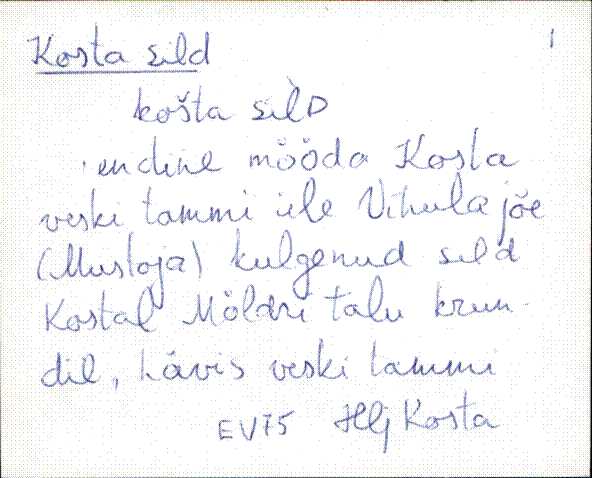 Kosta sild 1
košta silD
endine mööda Kosta
veski tammi üle Vihula jõe
(Mustoja) kulgenud sild
Kostal Möldri talu krun-
dil, hävis veski tammi
EV75 Hlj Kosta